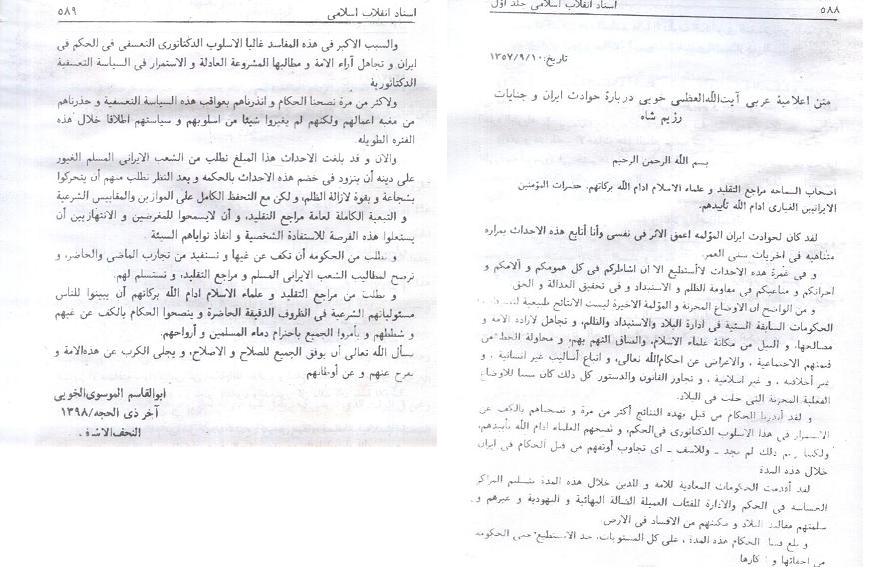 ۵۸۸
اسناد انقلاب اسلامی جلد اول
تاریخ: ۱۳۵۷/۹/۱۰
متن اعلامیة عربی آیت‌الله‌العظمی خویی دربارهٔ حوادث ایران و جنایات
رژیم شاه
بسم الله الرحمن الرحیم
اصحاب السماحه مراجع التقلید و علماء الاسلام ادام الله برکاتهم. حضرات المؤمنین
الایرانیین الغیاری ادام الله تأییدهم.
لقد کان لحوادث ایران المؤلمه اعمق الاثر فی نفسی وأنا أتابع هذه الاحداث بمراره
متناهیه فی اخریات سنی العمر.
و فی غمرة هذه الاحداث لاأستطیع الا ان اشاطرکم فی کل همومکم و آلامکم و
احزانکم و مساعیکم فی مقاومة الظلم و الاستبداد و فی تحقیق العدالة و الحق
و من الواضح ان الاوضاع المحزنة و المؤلمة الاخیرة لیست الانتائج طبیعیة
الحکومات السابقة السیئة فی ادارة البلاد والاستبداد والظلم، و تجاهل لاراده الامه و
مصالحها، و النیل من مکانة علماء الاسلام، والصاق التهم بهم، و محاولة الحط من
قیمتهم الاجتماعیة ، والاعراض عن احکام‌الله تعالی، و اتباع أسالیب غیر انسانیة ، و
غیر أخلاقیه ، و غیر اسلامیة ، و تجاوز القانون والدستور کل ذلك کان سببا للاوضاع
الفعلیة المحزنة التی حلت فی البلاد.
و لقد أنذرنا الحکام من قبل بهذه النتائج أکثر من مرة و نصحناهم بالکف عن
الاستمرار فی هذا الاسلوب الدکتاتوری فی‌الحکم، و نصحهم العلماء ادام الله تأییدهم،
ولکننا رغم ذلك لم نجد ـ وللاسف ـ ای تجاوب أوتفهم من قبل الحکام فی ایران
خلال هذه المدة
لقد أقدمت الحکومات المعادیة للامه و للدین خلال هذه المدة بتسلیم المراکز
الحساسه فی الحکم والادارة للفئات العمیلة الضالة البهائیة و الیهودیة و غیرهم و
سلمتهم مقالید البلاد و مکنتهم من الافساد فی الارض
و بلغ فساد الحکام هذه المدة ، علی کل المستویات، حد الاتستطیع حتی الحکومه
من اخفائها و انکارها.
اسناد انقلاب اسلامی
۵۸۹
والسبب الاکبر فی هذه المفاسد غالبا الاسلوب الدکتاتوری التعسفی فی الحکم فی
ایران و تجاهل آراء الامة و مطالبها المشروعة العادلة و الاستمرار فی السیاسة التعسفیة
الدکتاتوریة
ولاکثر من مرة نصحنا الحکام و انذرناهم بعواقب هذه السیاسة التعسفیة و حذرناهم
من مغبه اعمالهم ولکنهم لم یغیروا شیئا من اسلوبهم و سیاستهم اطلاقا خلال هذه
الفتره الطویله.
والان و قد بلغت الاحداث هذا المبلغ نطلب من الشعب الایرانی المسلم الغیور
علی دینه أن یتزود فی خضم هذه الاحداث بالحکمه و بعد النظر نطلب منهم أن یتحرکوا
بشجاعة و بقوة لازالة الظلم، و لکن مع التحفظ الکامل علی الموازین والمقاییس الشرعیة
و التبعیة الکاملة لعامة مراجع التقلید، و أن لایسمحوا للمغرضین و الانتهازیین أن
یستغلوا هذه الفرصة للاستفادة الشخصیة و انفاذ نوایاهم السیئة.
و نطلب من الحکومه أن تکف عن غیها و تستفید من تجارب الماضی والحاضر، و
ترضخ لمطالیب الشعب الایرانی المسلم و مراجع التقلید، و تستسلم لهم.
و نطلب من مراجع التقلید و علماء الاسلام ادام الله برکاتهم أن یبینوا للناس
مسئولیاتهم الشرعیة فی الظروف الدقیقة الحاضرة و ینصحوا الحکام بالکف عن غیهم
و شططهم و یأمروا الجمیع باحترام دماء المسلمین و أرواحهم.
نسأل الله تعالی أن یوفق الجمیع للصلاح و الاصلاح، و یجلی الکرب عن هذه‌الامة و
یفرج عنهم و عن أوطانهم
ابوالقاسم الموسوی‌الخویی
آخر ذی الحجه/۱۳۹۸
النجف‌الاشرف